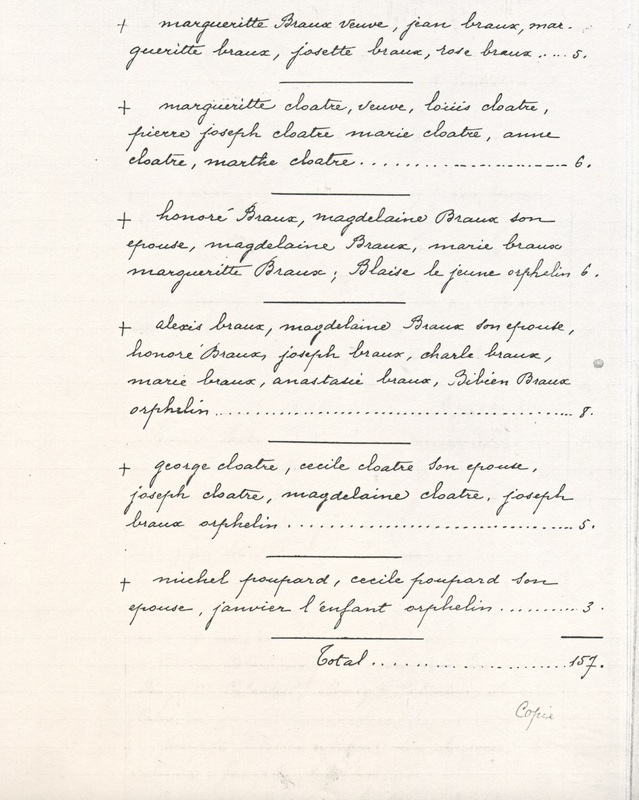 + margueritte Braux veuve, jean braux, mar-
gueritte braux, josette braux, rose braux..... 5.
+ margueritte cloatre, veuve, loüis cloatre,
pierre joseph cloatre marie cloatre, anne
cloatre, marthe cloatre........................ 6.
+ honoré Braux, magdelaine Braux son
epouse, magdelaine Braux, marie braux
margueritte Braux; Blaise le jeune orphelin 6.
+ alexis braux, magdelaine Braux son epouse,
honoré Braux, joseph braux, charle braux,
marie braux, anastasie braux, Bibien Braux
orphelin........................................ 8.
+ george cloatre, cecile cloatre son epouse,
joseph cloatre, magdelaine cloatre, joseph
braux orphelin.................................. 5.
+ michel poupard, cecile poupard son
epouse, janvier l'enfant orphelin.......... 3.
Total........................157.
Copie